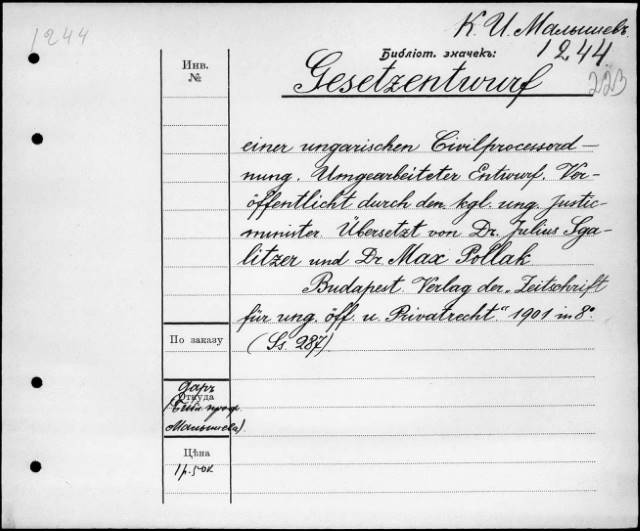 1244
К. И. Малышевъ
Библіот. значекъ:
1244
223
Инв.
№
Gesetzentwurf
einer ungarischen Civilprocessord-
nung. Umgearbeiteter Entwurf. Ver-
öffentlicht durch den kgl. ung. Justiz-
minister. Übersetzt von Dr. Julius Sga-
litzer und Dr Max Pollak
Budapest. Verlag der „Zeitschrift
für ung. öff. u. Privatrecht.“ 1901 in 8°
(Ss. 287).
По заказу
даръ
Откуда
(Библ. проф.
Малышева).
Цѣна
1 р. 50 к